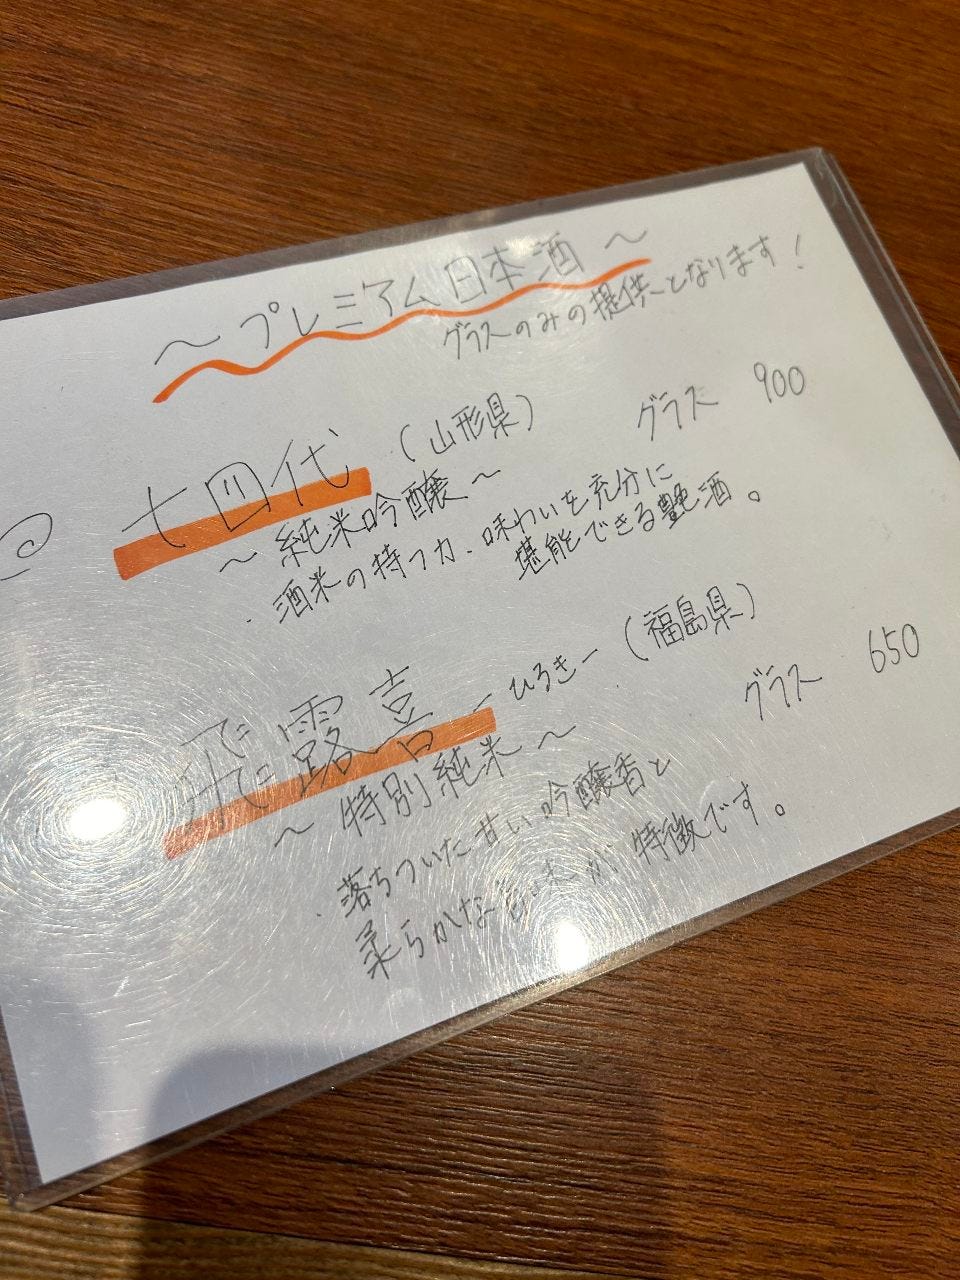 ～プレミアム日本酒～
グラスのみの提供となります！
十四代 （山形県） グラス 900
～純米吟醸～
・酒米の持つ力、味わいを充分に
堪能できる艶酒。
飛露喜 －ひろき－ （福島県） グラス 650
～特別純米～
・落ちついた甘い吟醸香と
柔らかな旨味が特徴です。